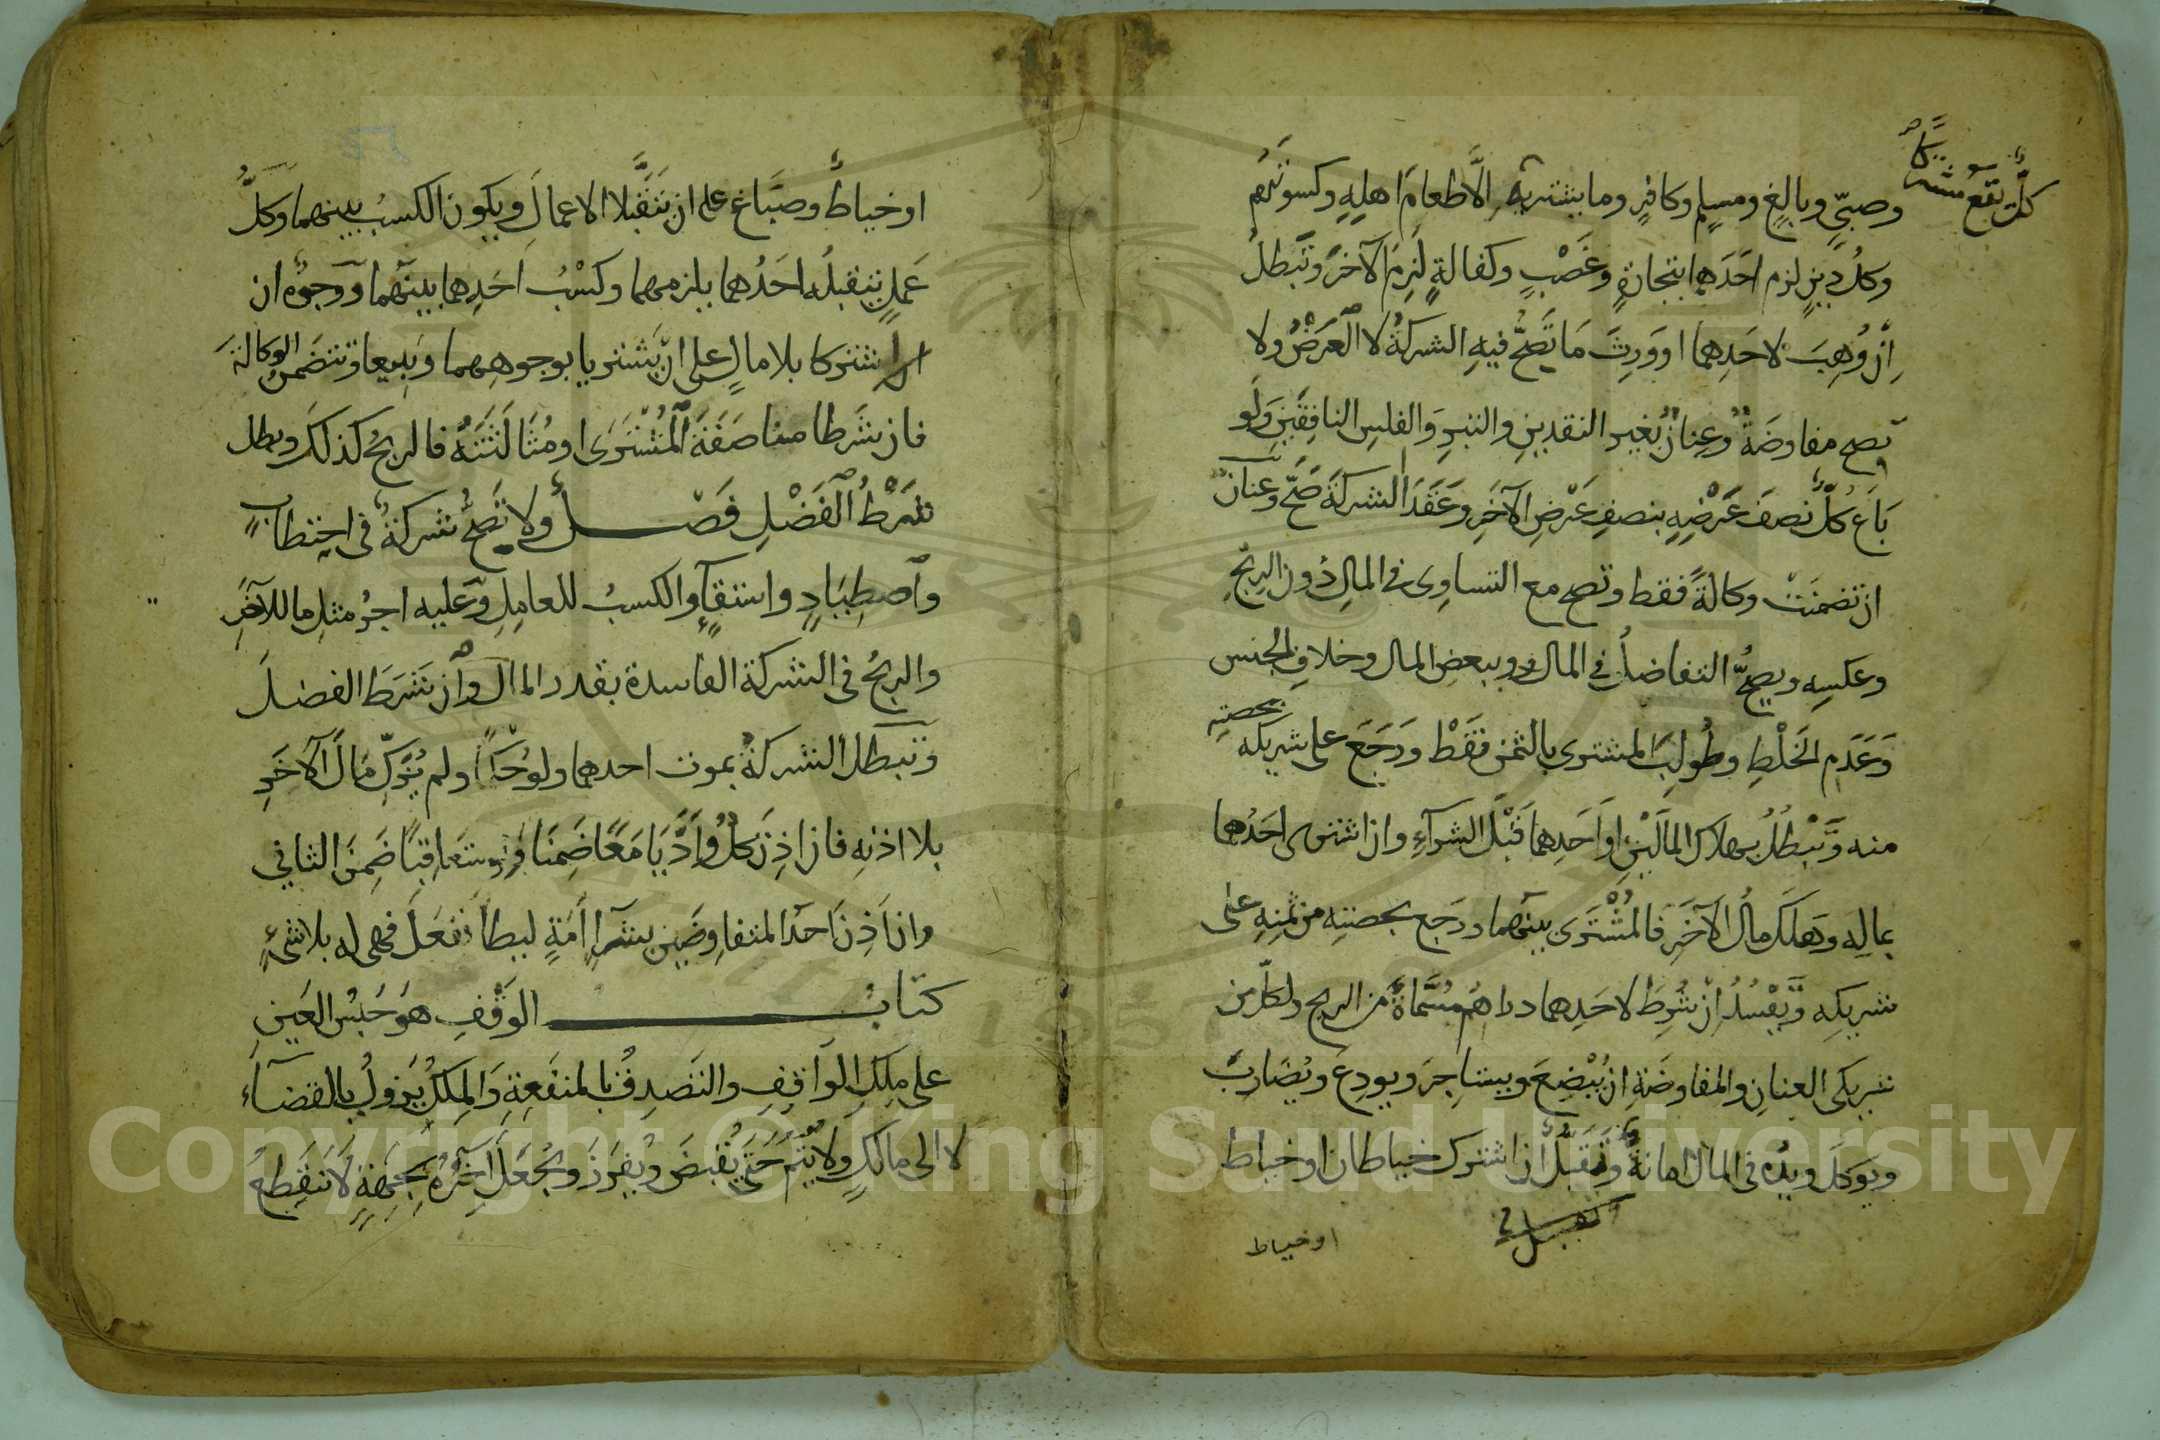 كلٌّ يقع مشتركًا
وصبيٍّ وبالغٍ ومسلمٍ وكافرٍ وما يشتريه كلٌّ يقع مشتركًا الّا طعامَ اهلِهِ وكسوتَهم
وكلُّ دينٍ لزم احَدَهما بتجارةٍ وغَصْبٍ وكفالةٍ لَزِمَ الآخرَ وتَبطلُ
اِنْ وُهِبَ لاحَدِهما او وَرِثَ مَا تَصِحُّ فيهِ الشركةُ لا العَرَضُ ولا
تصح مفاوضَةٌ وعِنانٌ بغير النقدينِ والتبرِ وَالفلسِ النافِقَينِ وَلَو
بَاعَ كلٌّ نصفَ عَرْضِهِ بنصفِ عَرْضِ الآخَرِ وعَقَدَا الشركةَ صَحَّ وعنانٌ
ان تضمنَتْ وكالةً فقط وتصح مع التساوِى فى المالِ دُونَ الرِبحِ
وعكسِهِ ويصحُّ التفاضلُ فى المال وببعضِ المال وخلافِ الجنس
وَعَدَمِ الخَلْطِ وطُولِبَ المشترى بالثمنِ فقَطْ ورَجَعَ على شريكه بحصته
منه وتَبْطُلُ بهلاك المالَيْنِ او اَحَدِهما قَبْلَ الشرآءِ وان اشترى احَدُهما
بمالِهِ وهَلَكَ مالُ الآخَرِ فالمُشْتَرَى بينَهما ورجع بحصتِهِ من ثمنِهِ على
شريكِه وتَفْسُدُ اِنْ شُرِطَ لاحَدِهما دراهمُ مُسَمَّاةٌ من الربح ولكلٍّ من
شريكى العنانِ والمفاوضَةِ ان يُبْضِعَ ويستاجِرَ ويودِعَ ويُضارِبَ
ويوكلَ ويدُه فى المال امانةٌ وتَقَبُّلٌ ان اشترك خياطان او خياط
او خياط
او خياطٌ وصبَّاغ على ان يَتَقَبَّلا الاعمالَ ويكون الكسبُ بينهما وكلُّ
عَمَلٍ يتقبلُه احَدُهما يلزمهما وكَسْبُ احَدِهما بينَهما ووجوهٌ ان
اشتركا بلا مالٍ على اَنْ يشتريا بوجوهِهما وَيبيعا وتتضمنُ الوكالةَ
فان شَرطا مناصَفَةَ المُشْتَرَى او مُثَالَثَتَهُ فالربحُ كذلك وبطل
شَرْطُ الفَضْلِ فَصْلٌ ولا تَصِحُّ شركةٌ فى احتطابٍ
واصطِيَادٍ واستقآءٍ والكسبُ للعامِلِ وعَلَيه اجرُ مثلِ ما للآخَرِ
والربحُ فى الشركة الفاسدة بقدر المال وَاِن شَرَطَ الفضلَ
وتبطل الشركةُ بموت احدهما ولو حُكْمًا ولم يُزَكِّ مَالَ الآخَرِ
بلا اذنِه فان اذِنَ كلٌّ وَاَدَّيَا مَعًا ضَمِنَا ومتعَاقِبًا ضَمِنَ الثانى
وان اَذِنَ اَحَدُ المتفاوِضَينِ بشرآءِ اَمَةٍ ليطأ ففعَلَ فهى له بلا شئٍ
كتابُ الوَقْفِ هوَ حَبسُ العَينِ
على مِلكِ الوَاقِفِ والتَصدقُ بالمنفَعِةِ وَالمِلكُ يَزولُ بالقضآءِ
لا الى مالكٍ ولا يَتُمُّ حَتَّى يُقبَضَ ويُفرَزَ ويُجعَلَ آخِرُهُ لجِهَةٍ لا تنقَطِعُ